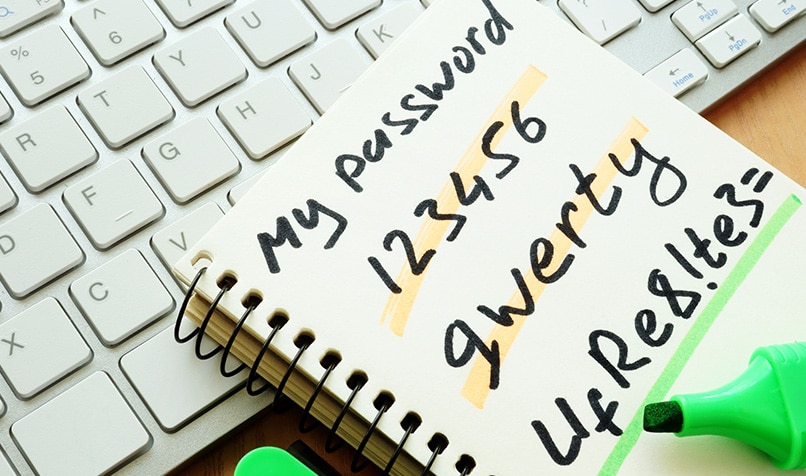 My password
123456
qwerty
UfRe8!te3=
^
6
%
5
Y
U
K
T
H
J
R
G
F
D
V
C
X
PgUp
PgDn
Home
End